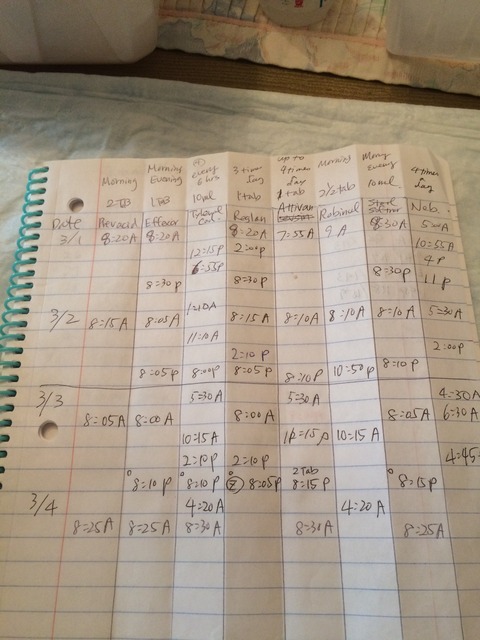 Morning Morning Evening every 6 hrs 3 times day up to 4 times day Morning Morning every 4 times day
2-TB 1 TB 10ml 1 tab 1 tab 2 1/2 tab 10ml
Date Prevacid Effexor Reglan Ativan Robinul Neb.
3/1 8:20A 8:20A 8:20A 7:55A 9A 8:30A 5:00A
12:15P 2:00P 10:55A
6:55P 4P
8:30P 8:30P 8:30P 11P
1:10A
3/2 8:15A 8:05A 8:15A 8:10A 8:10A 8:10A 5:30A
11:10A
2:10P 2:00P
8:05P 8:00P 8:05P 8:10P 10:50P 8:10P
3/3 5:30A 5:30A 4:30A
8:05A 8:00A 8:00A 8:05A 6:30A
10:15A 12:15P 10:15A
2:10P 2:10P 4:45
8:10P 8:10P 8:05P 2 Tab 8:15P 8:15P
3/4 4:20A 4:20A
8:25A 8:25A 8:30A 8:30A 8:25A